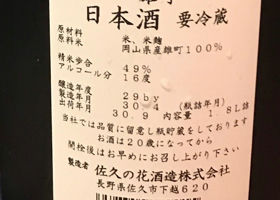 日本酒 要冷蔵
原材料 米、米麹
原料米 岡山県産雄町100%
精米歩合 49%
アルコール分 16度
醸造年度 29by
製造年月 30.4 (瓶詰年月)
出荷年月 30.9 内容量 1.8L詰
当社では品質に留意し紙貯蔵をしております
お酒は20歳になってから
開栓後はお早めにお召し上がり下さい
製造者 佐久の花酒造株式会社
長野県佐久市下越620